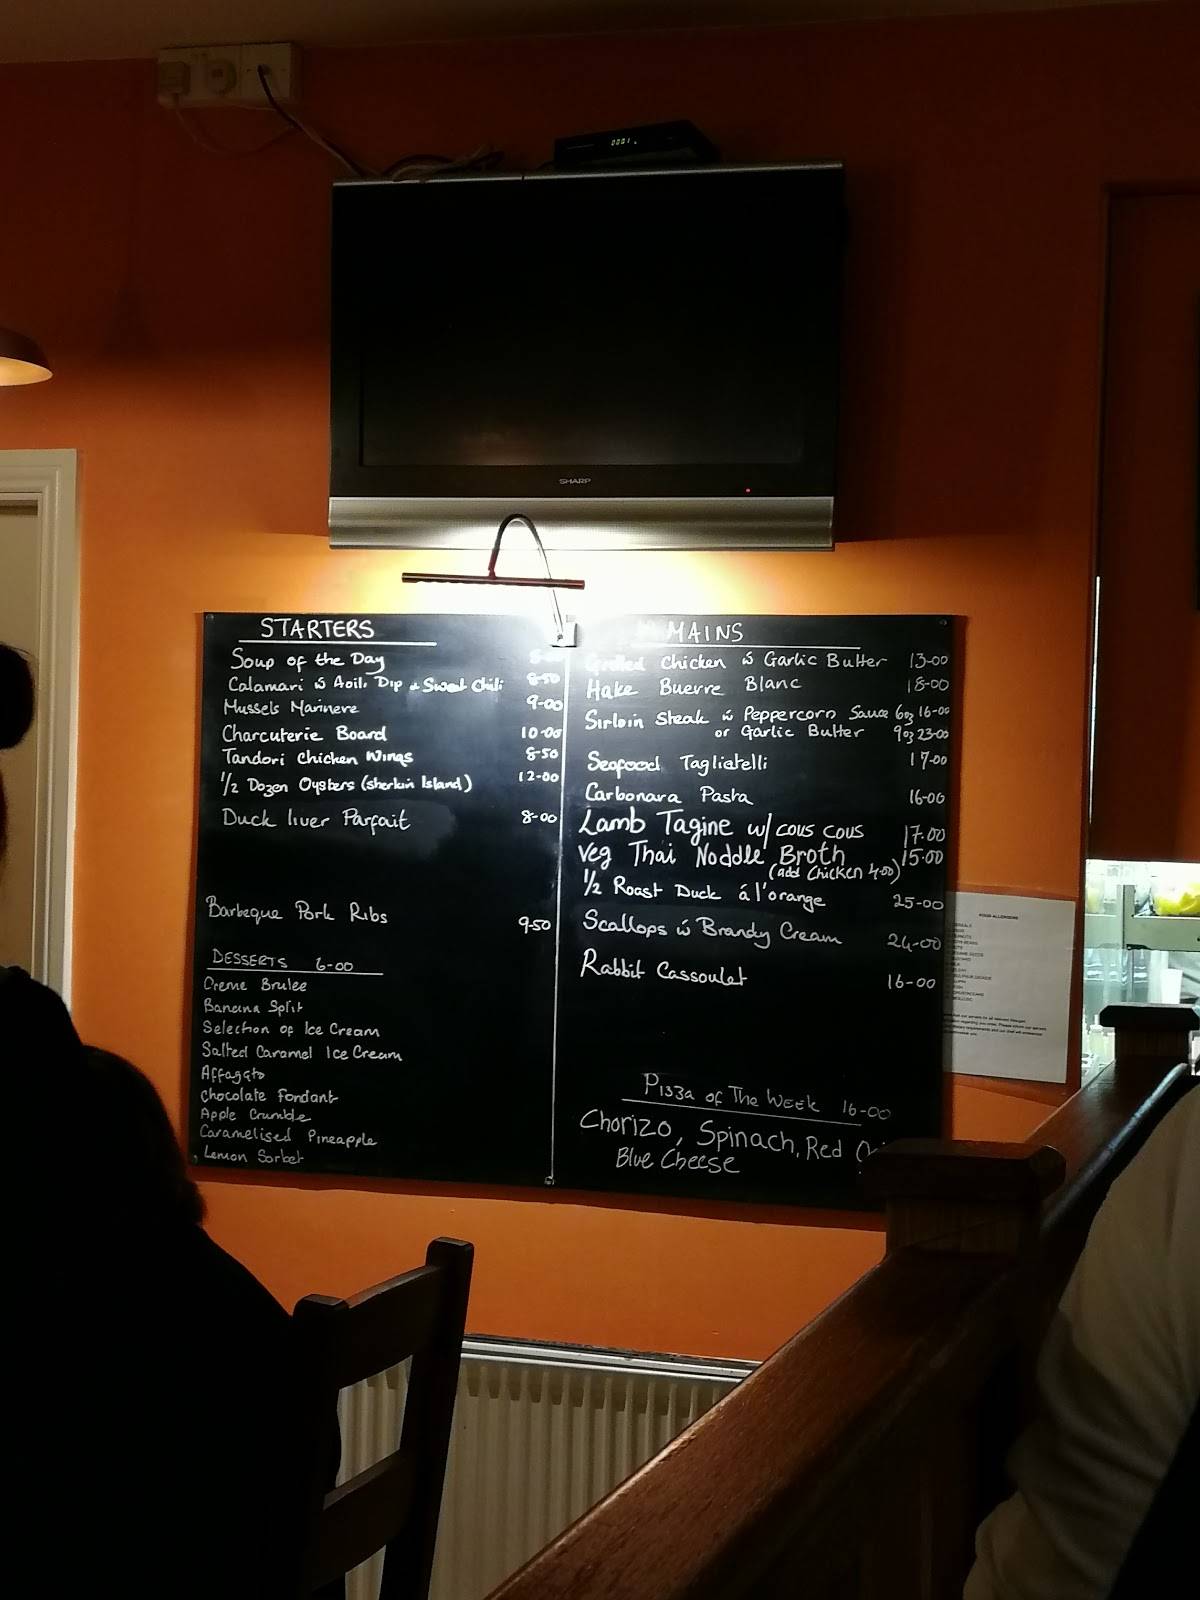 0001
SHARP
STARTERS
Soup of the Day
Calamari w Aoili Dip & Sweet Chili 8-50
Mussels Marinere 9-00
Charcuterie Board 10-00
Tandori Chicken Wings 8-50
1/2 Dozen Oysters (sherkin Island) 12-00
Duck liver Parfait 8-00
Barbeque Pork Ribs 9-50
DESSERTS 6-00
Creme Brulee
Banana Split
Selection of Ice Cream
Salted Caramel Ice Cream
Affagato
Chocolate Fondant
Apple Crumble
Caramelised Pineapple
Lemon Sorbet
MAINS
Grilled Chicken w Garlic Butter 13-00
Hake Buerre Blanc 18-00
Sirloin Steak w Peppercorn Sauce 6oz 16-00
or Garlic Butter 9oz 23-00
Seafood Tagliatelli 17-00
Carbonara Pasta 16-00
Lamb Tagine w/ cous cous 17.00
Veg Thai Noddle Broth 15.00
(add Chicken 4.00)
1/2 Roast Duck á l'orange 25-00
Scallops w Brandy Cream 24-00
Rabbit Cassoulet 16-00
Pizza of The Week 16-00
Chorizo, Spinach, Red
Blue Cheese
FOOD ALLERGENS